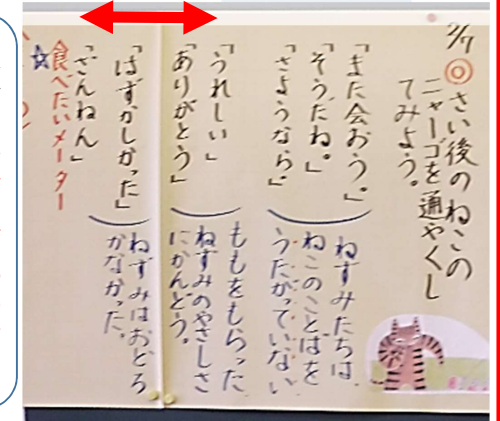 2/7 ◎さい後のねこの
ニャーゴを通やくし
てみよう。
「また会おう。」
「そうだね。」
「さようなら。」
ねずみたちは
ねこのことばを
うたがっていない
「うれしい」
「ありがとう」
ももをもらった
ねずみのやさしさ
にかんどう。
「はずかしかった」
「ざんねん」
ねずみはおどろ
かなかった。
☆食べたいメーター